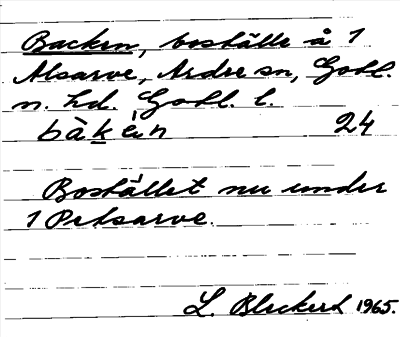 Backen, boställe å 1
Alsarve, Ardre sn, Gotl.
n. hd. Gotl. l.
bàkèn 24
Bostället nu under
1 Petsarve.
L. Bleckert 1965.